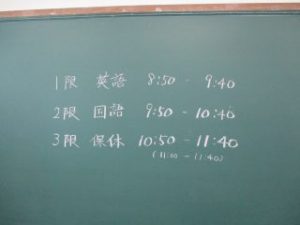 1限 英語 8:50 - 9:40
2限 国語 9:50 - 10:40
3限 保体 10:50 - 11:40
(11:00 - 11:40)